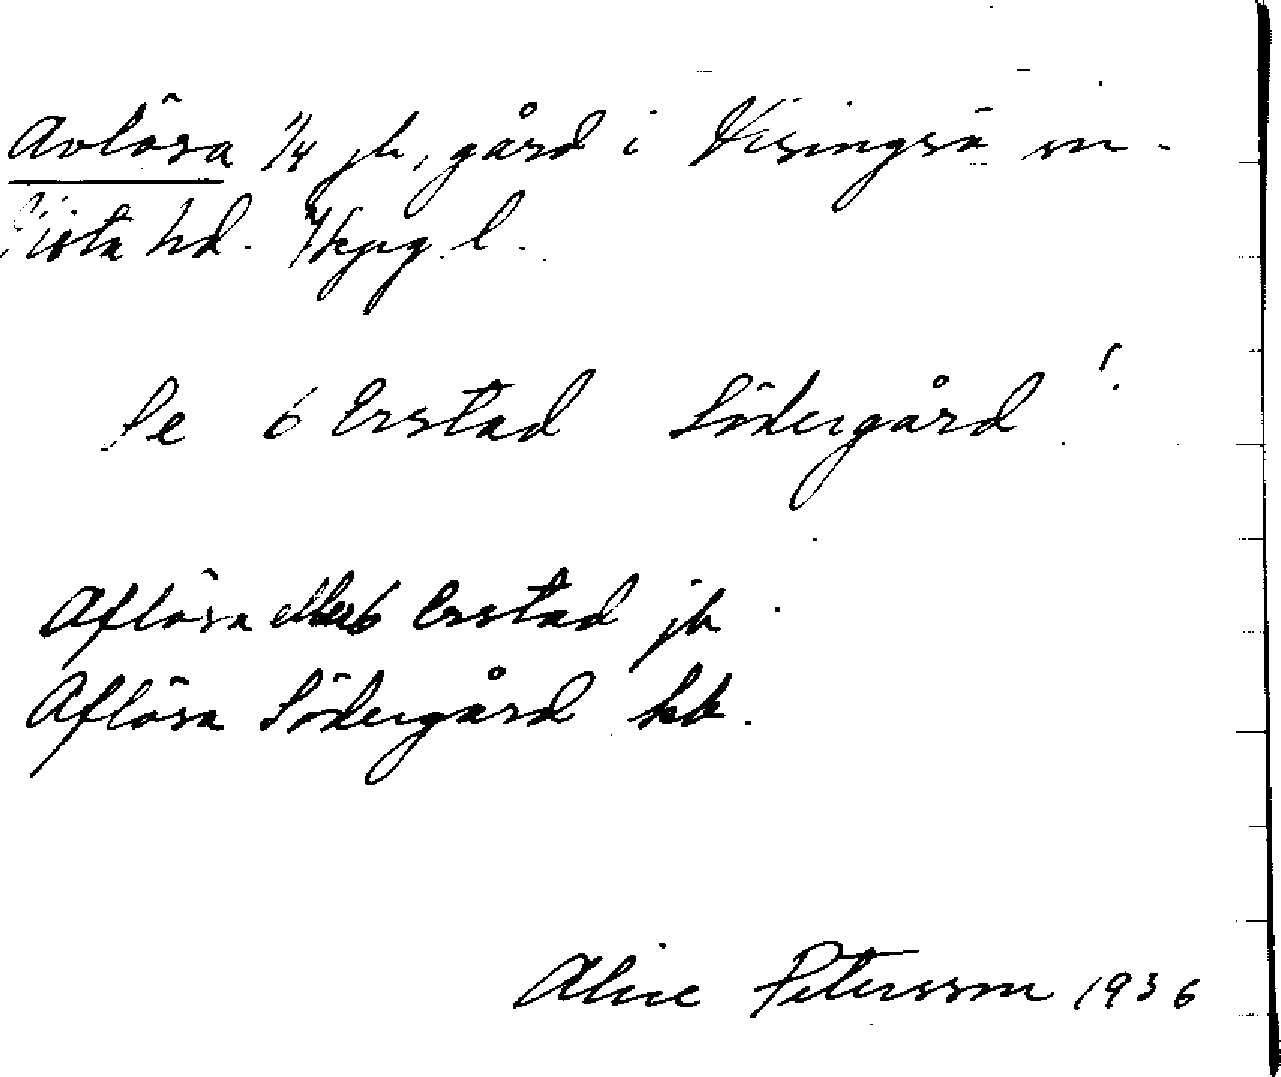 Avlösa 1/4 jb, gård i Visingsö sn.
Vista hd. Jkpg l.
Se 6 Erstad Södergård!
Aflösa eller 6 Erstad jb
Aflösa Södergård kb.
Alice Petersson 1936